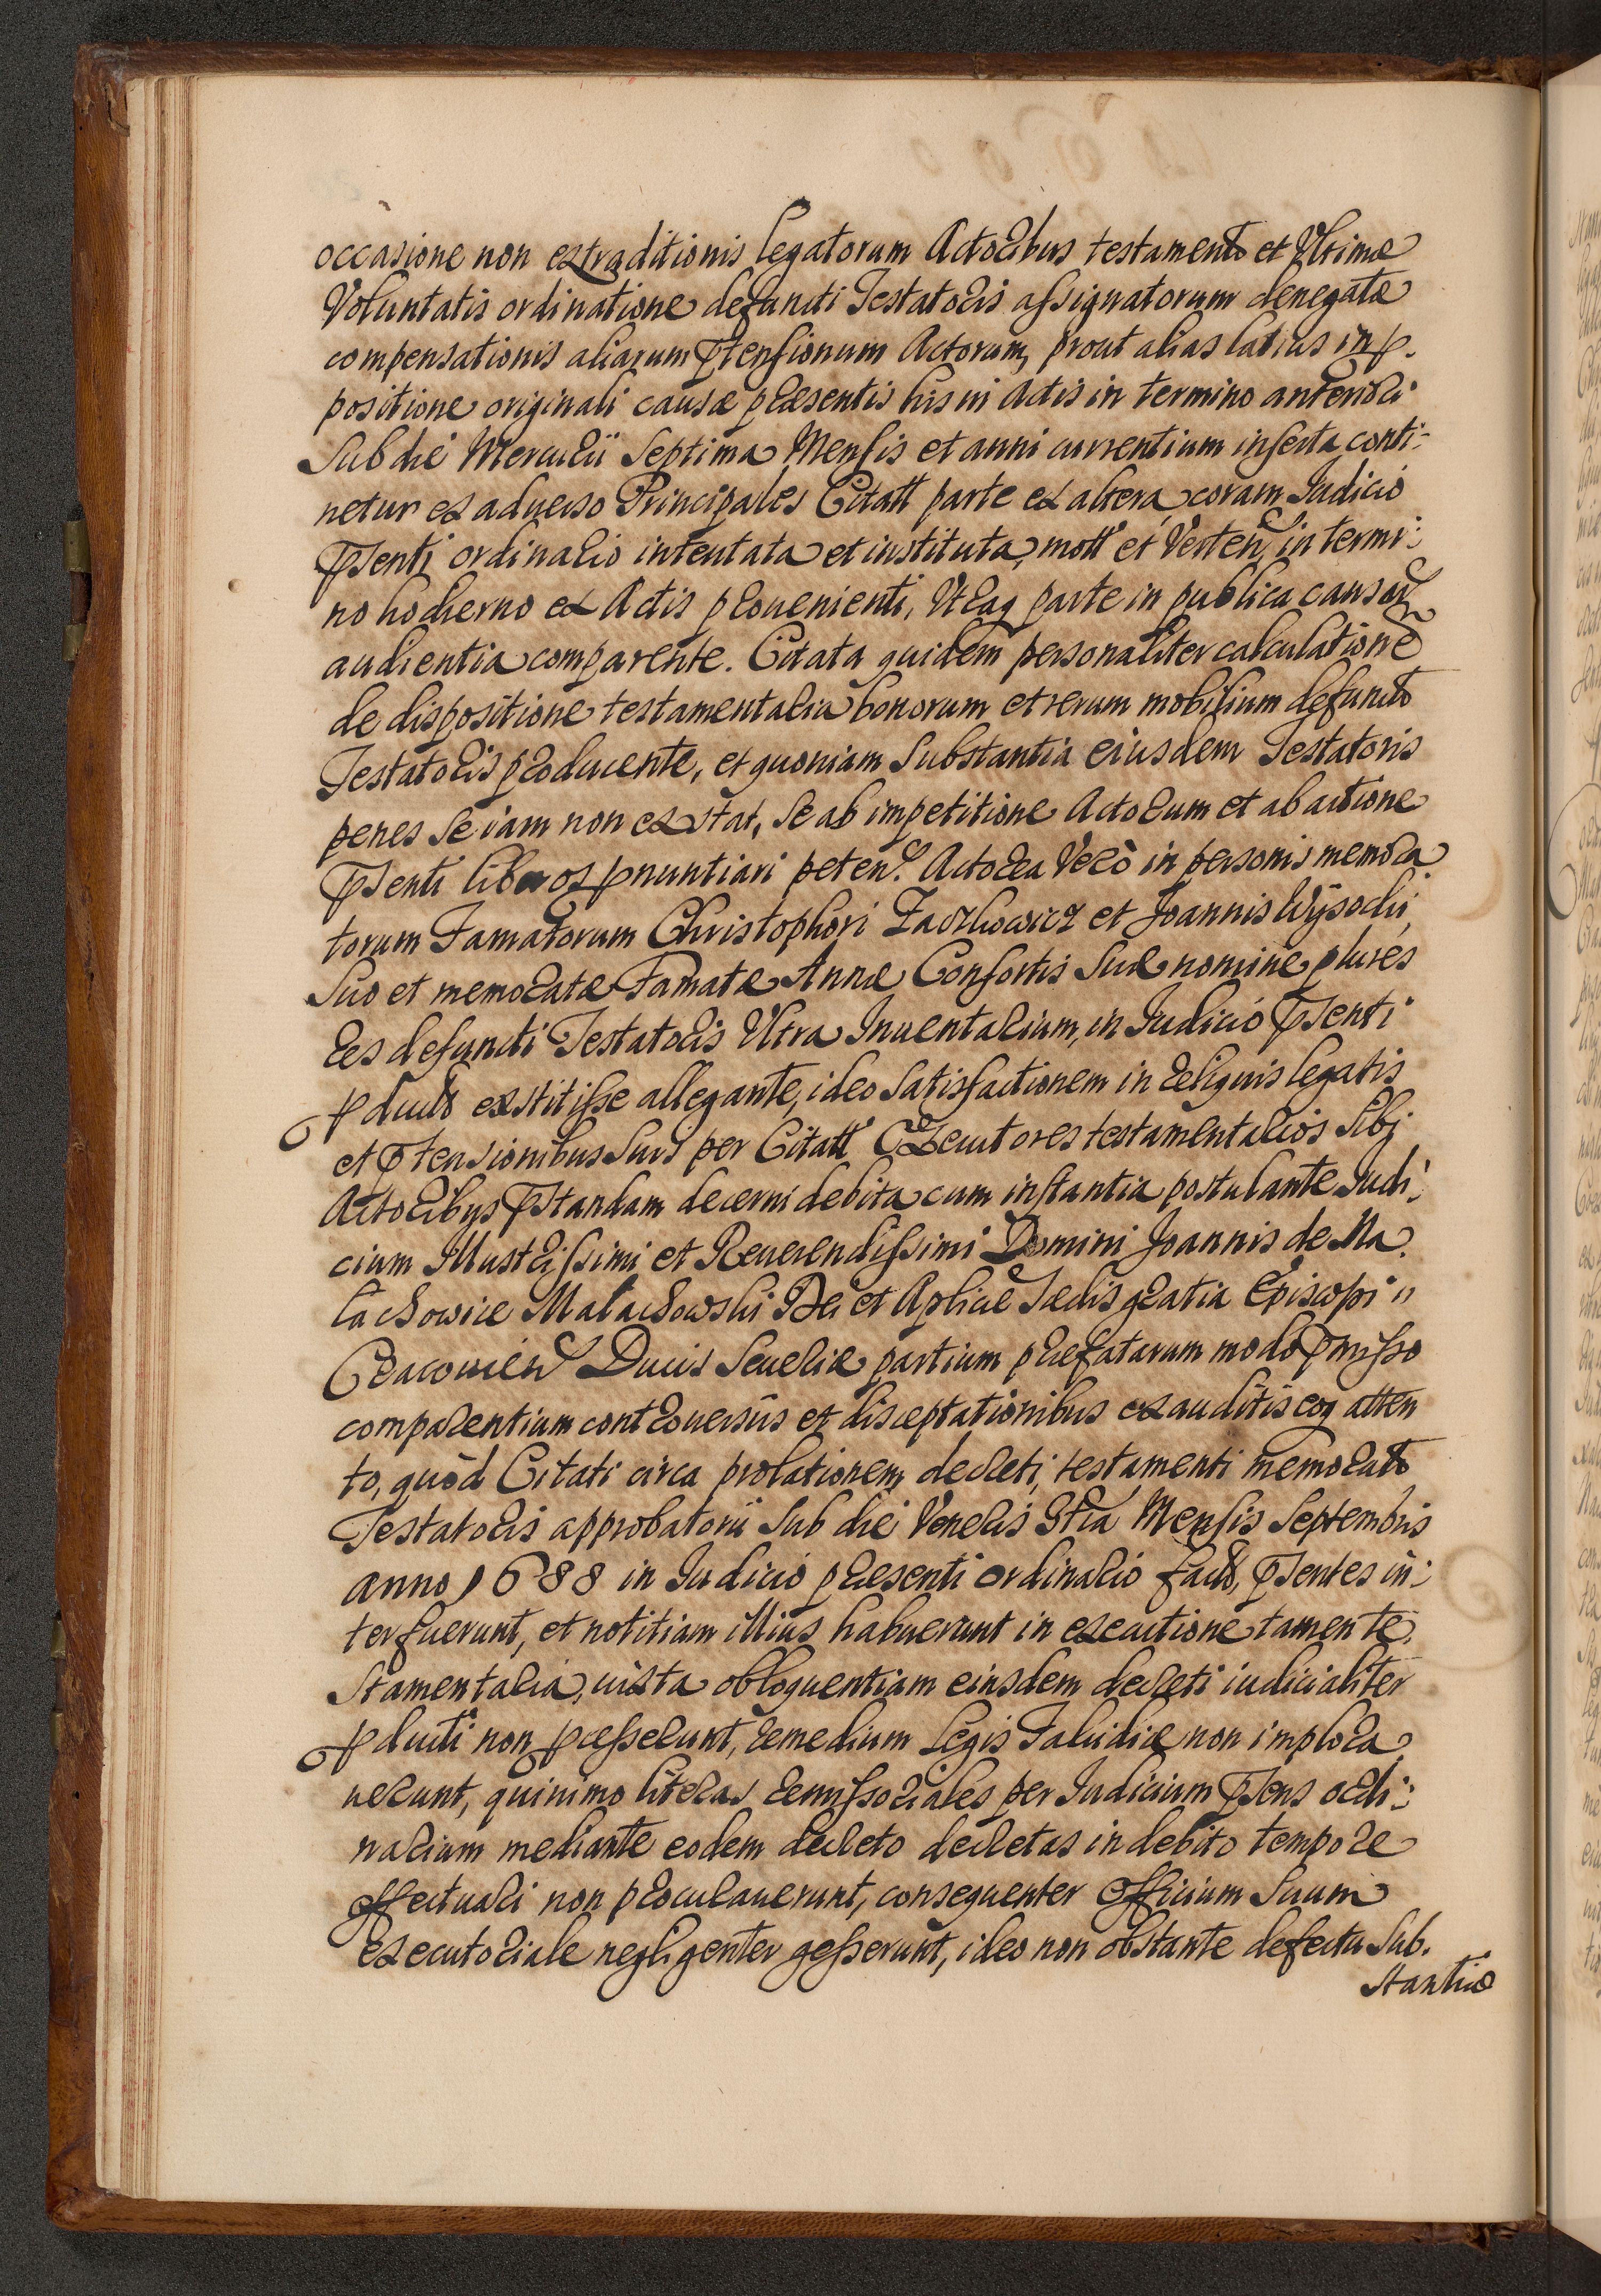 occasione non extraditionis legatorum Actoribus testamento et Ultimæ
Voluntatis ordinatione defuncti Testatoris assignatorum denegatæ
compensationis aliarum Ptensionum Actorum, prout alias latius in p.
positione originali causæ præsentis his in Actis in termino anteriori
Sub die Mercurii Septima Mensis et anni currentium inserta conti:
netur ex adverso Principales Citatt parte ex altera, coram Iudicio
Psenti ordinario intentata et instituta, mott et Verten in termi:
no hodierno ex Actis provenienti, Utraq parte in publica causar
audientia comparente. Citata quidem personaliter calculatione
de dispositione testamentaria bonorum et rerum mobilium defuncto
Testatoris producente, et quoniam Substantia eiusdem Testatoris
penes Se iam non exstat, Se ab impetitione Actorum et ab actione
Psenti liberos pnuntiari peten. Actorea Verò in personis memora.
torum Famatorum Christophori Zaorskowicz et Joannis Wysocki,
Suo et memoratæ Famatæ Annæ Consortis Suæ nomine plures
Res defuncti Testatoris Ultra Inventarium, in Iudicio Psenti
pducto exstitisse allegante, ideo Satisfactionem in reliquis legatis
et Ptensionibus Suis per Citatt Executores testamentarios Sibj
Actoribus Pstandam decerni debita cum instantia postulante Iudi:
cium Illustrissimi et Reverendissimi Domini Joannis de Ma.
lachowice Malachowski Dei et Aplicæ Sedis gratia Episcopi "
Cracovien Ducis Severiæ partium præfatarum modo Pmisso
comparentium controversiis et disceptationibus exauditis eoq atten
to, quòd Citati circa prolationem decreti, testamenti memorato
Testatoris approbatorii Sub die Veneris 3tia Mensis Septembris
anno 1688 in Iudicio præsenti ordinario facto, Psentes in:
terfuerunt, et notitiam illius habuerunt in executione tamen te.
stamentaria, iuxta obloquentiam eiusdem decreti iudicialiter
pducti non pcesserunt, remedium Legis Falcidiæ non implora
verunt, quinimo literas remissoriales per Iudicium Psens ordi:
narium mediante eodem decreto decretas in debito tempore
effectuari non procuraverunt, consequenter Officium Suum
executoriale negligenter gesserunt, ideo non obstante defectu Sub.
stantiæ